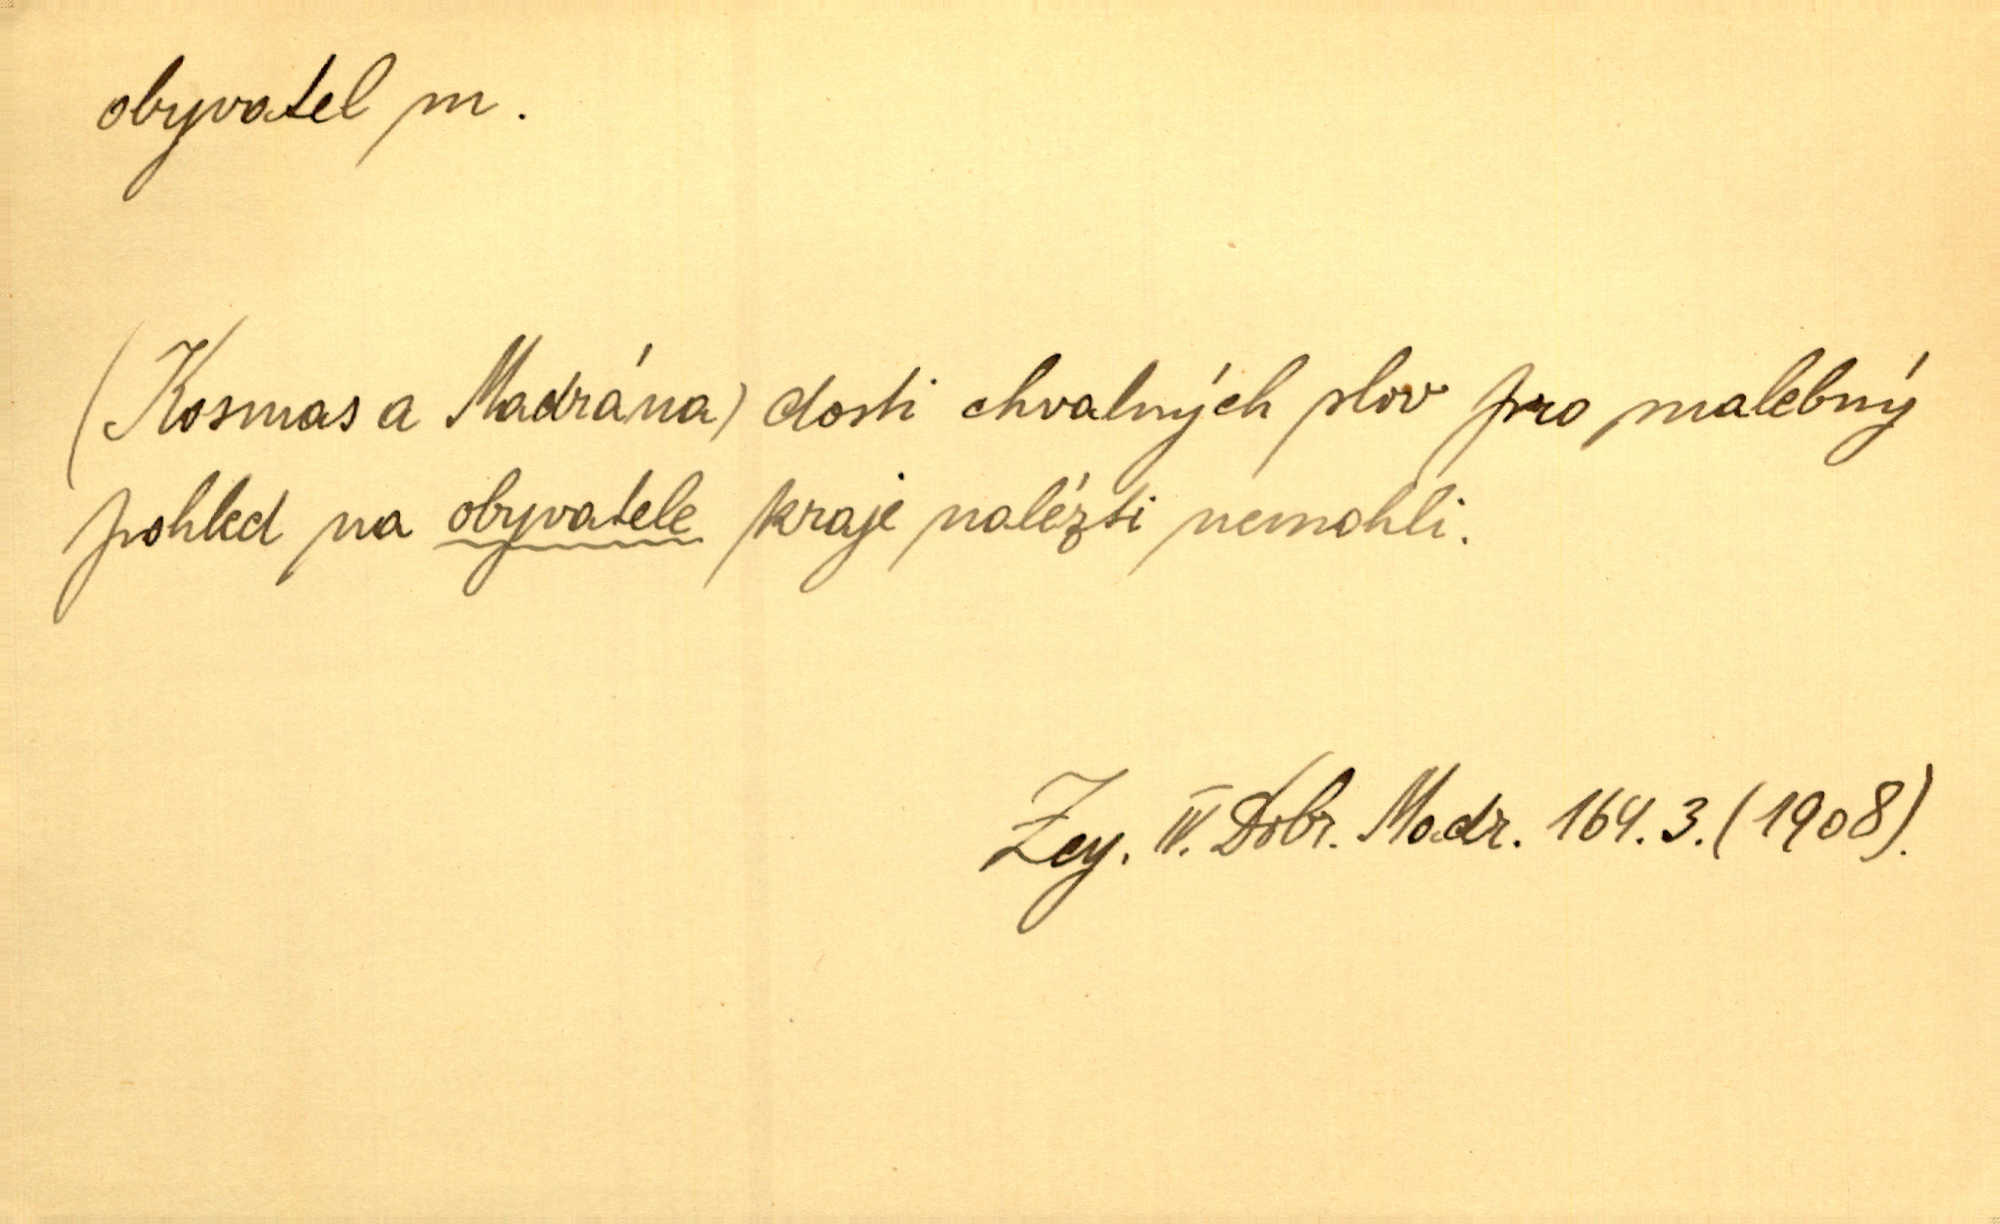 obyvatel m.
(Kosmas a Madrána) dosti chvalných slov pro malebný
pohled na obyvatele kraje nalézti nemohli.
Zey. IV. Dobr. Madr. 164. 3. (1908).